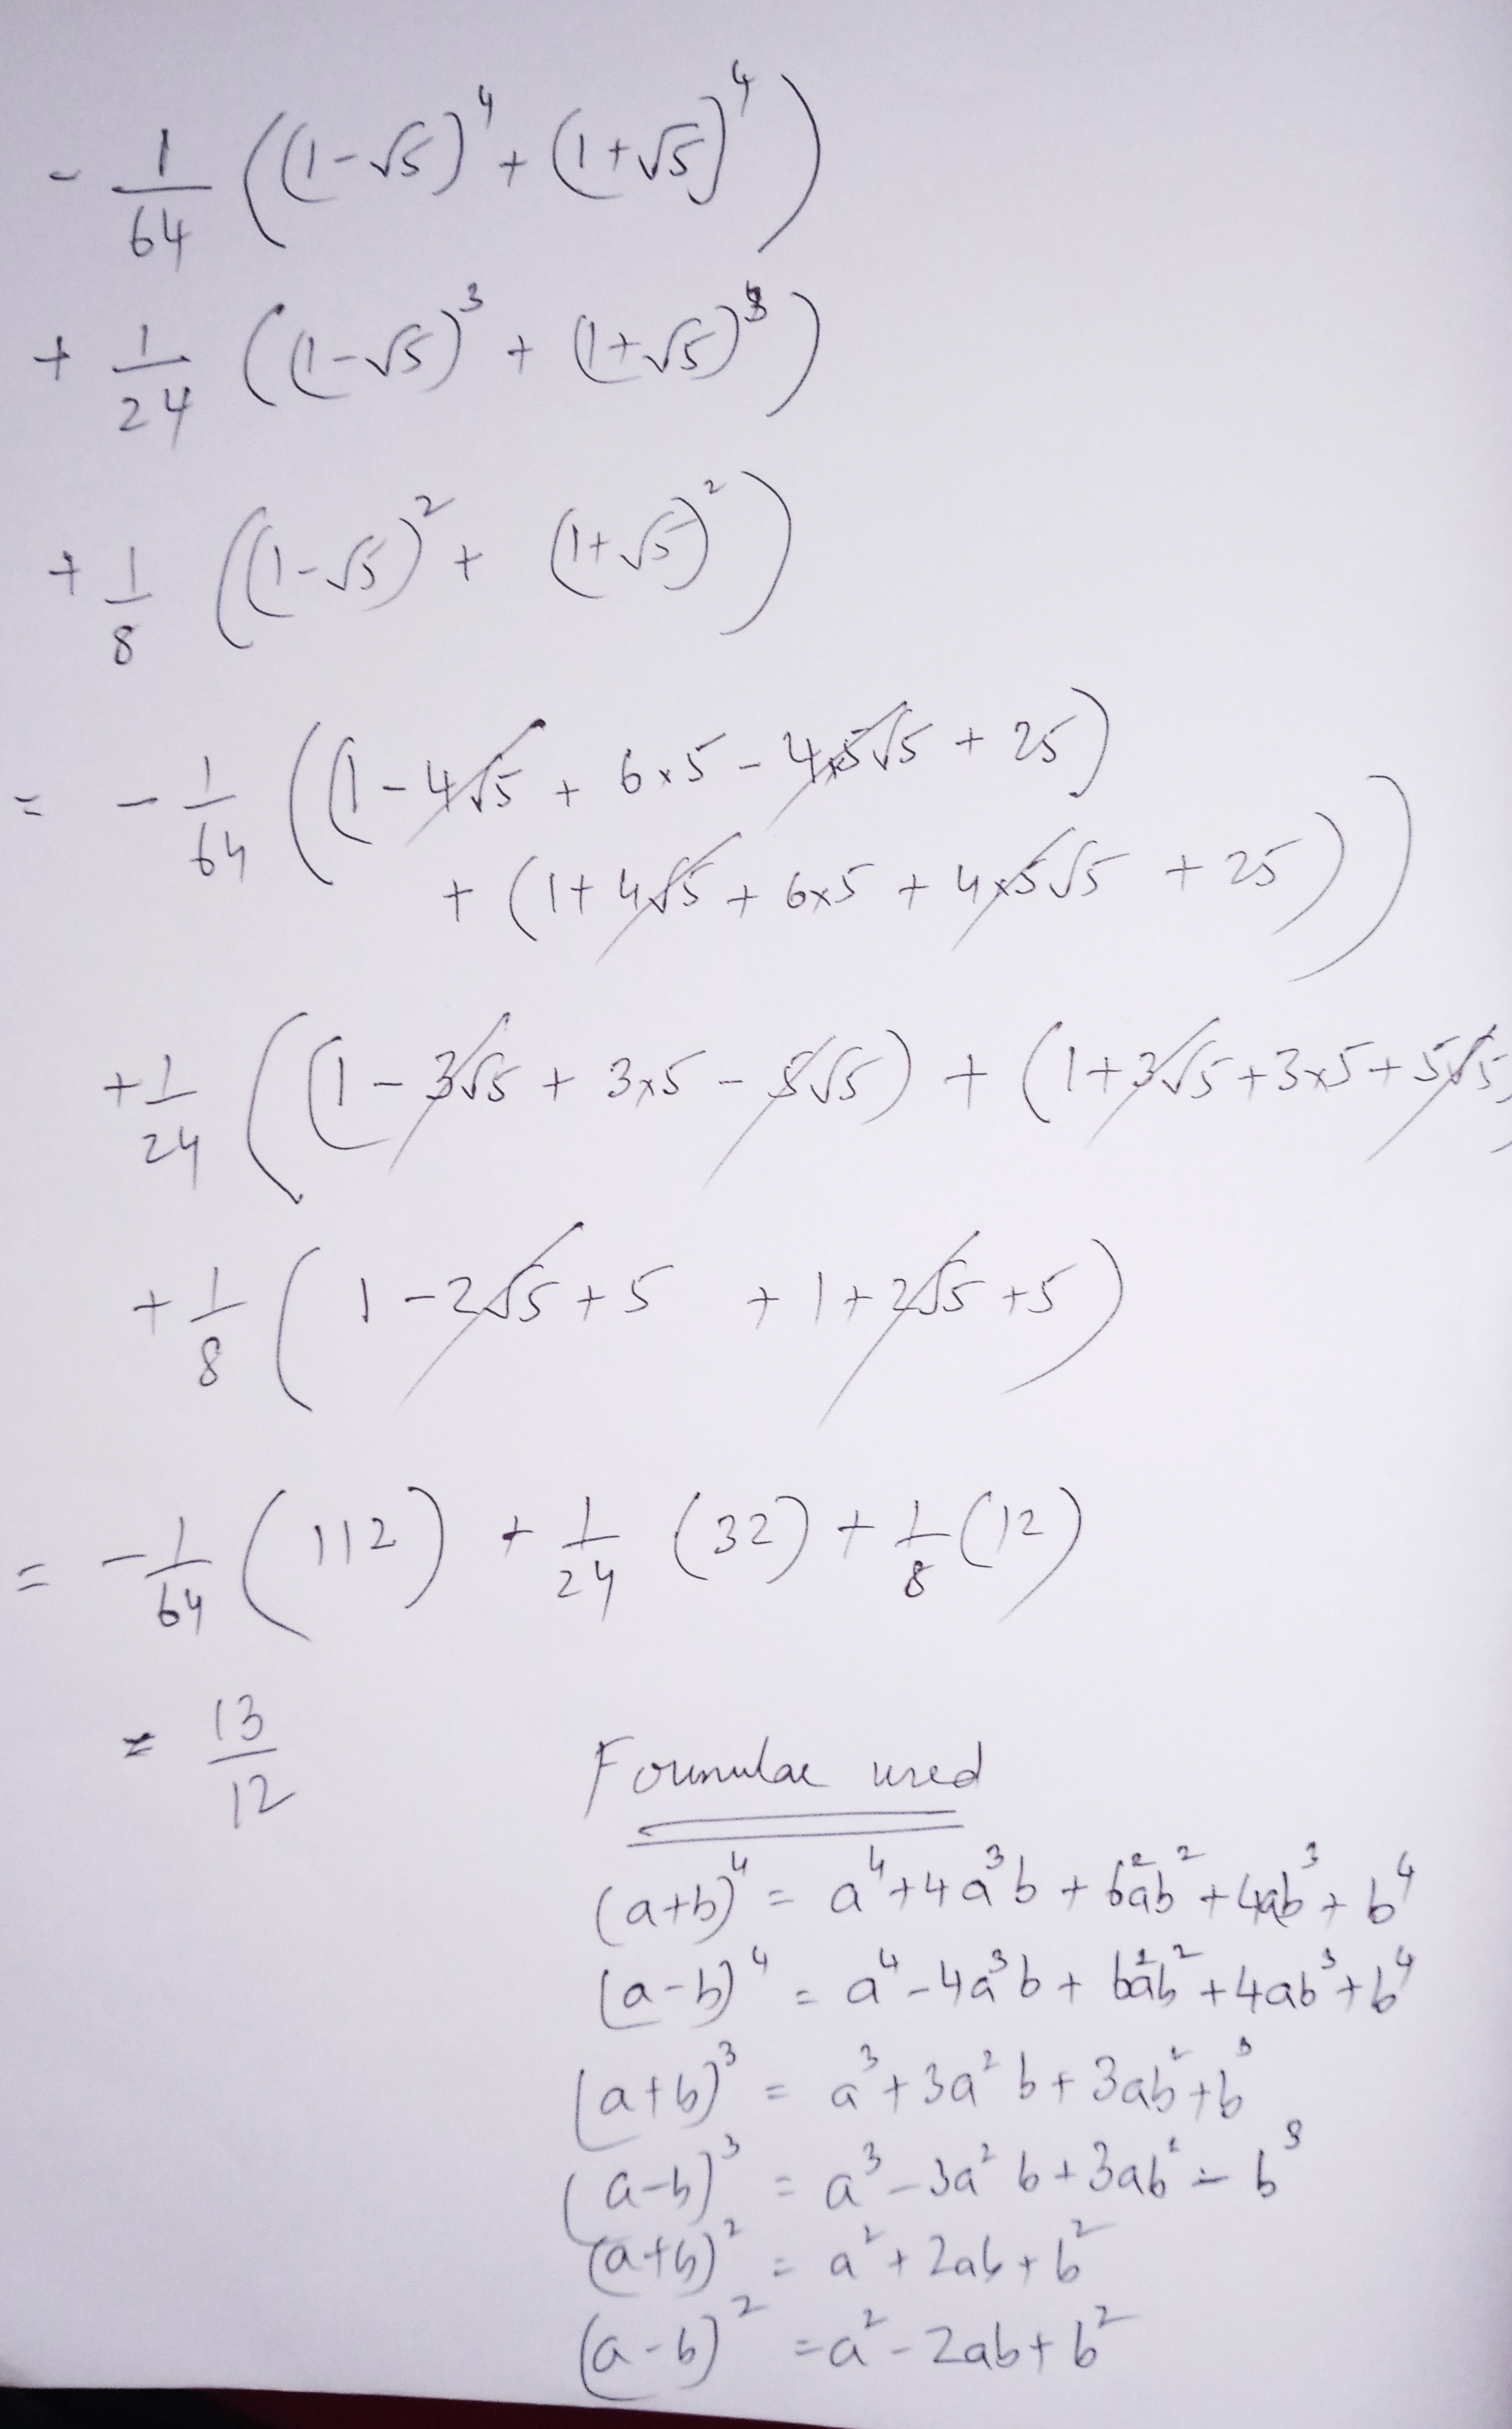 - 1/64 ((1-√5)⁴ + (1+√5)⁴)
+ 1/24 ((1-√5)³ + (1+√5)³)
+ 1/8 ((1-√5)² + (1+√5)²)
= - 1/64 ((1-4√5 + 6×5 - 4×5√5 + 25)
+ (1+4√5 + 6×5 + 4×5√5 + 25))
+ 1/24 ((1-3√5 + 3×5 - 5√5) + (1+3√5+3×5+5√5)
+ 1/8 (1-2√5+5 + 1+2√5+5)
= - 1/64 (112) + 1/24 (32) + 1/8 (12)
= 13/12
Formulae used
(a+b)⁴ = a⁴+4a³b + 6a²b² + 4ab³ + b⁴
(a-b)⁴ = a⁴-4a³b + 6a²b² + 4ab³ + b⁴
(a+b)³ = a³+3a²b+3ab²+b³
(a-b)³ = a³-3a²b+3ab²-b³
(a+b)² = a²+2ab+b²
(a-b)² = a²-2ab+b²